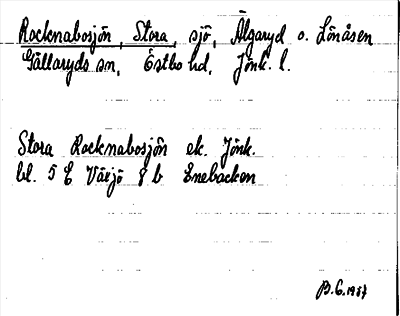 Rocknabosjön, Stora, sjö, Älgaryd o. Lönåsen
Gällaryds sn, Östbo hd, Jönk. l.
Stora Rocknabosjön ek. Jönk.
bl. 5 E Växjö 8 b Enebacken
B.G. 1987